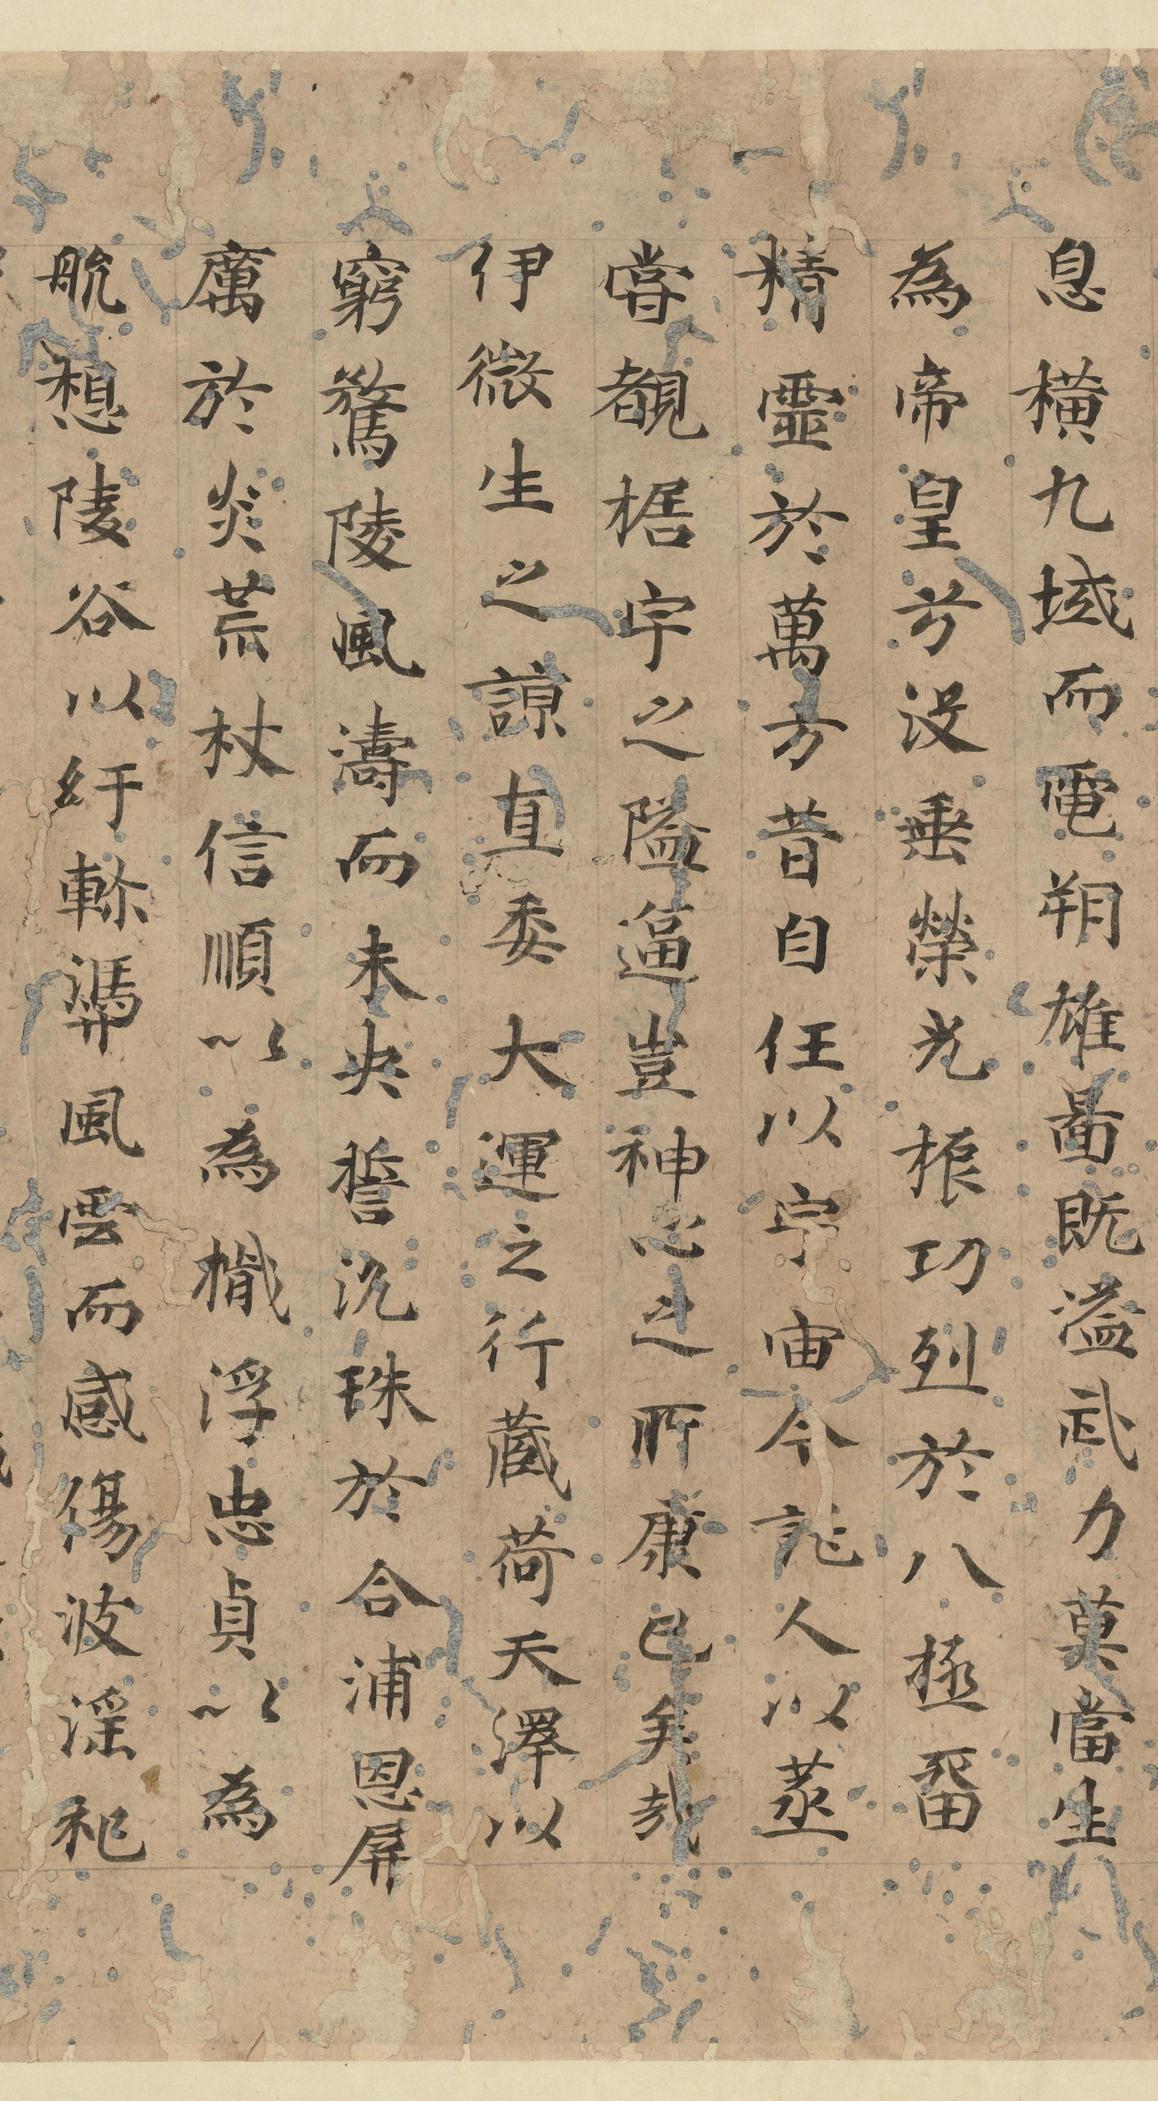 息橫九域而電朔雄啚既溢武力莫當生
為帝皇兮沒垂榮光振功烈於八極畱
精靈於萬方昔自任以宇宙今託人以蒸
嘗覩椐宇之隘逼豈神心之所康已矣哉
伊微生之諒直委大運之行蔵荷天澤以
窮騖陵風濤而未央誓沉珠於合浦恩屏
厲於炎荒杖信順以為檝浮忠貞以為
航想陵谷以紆軫憑風雲而感傷波淫祀